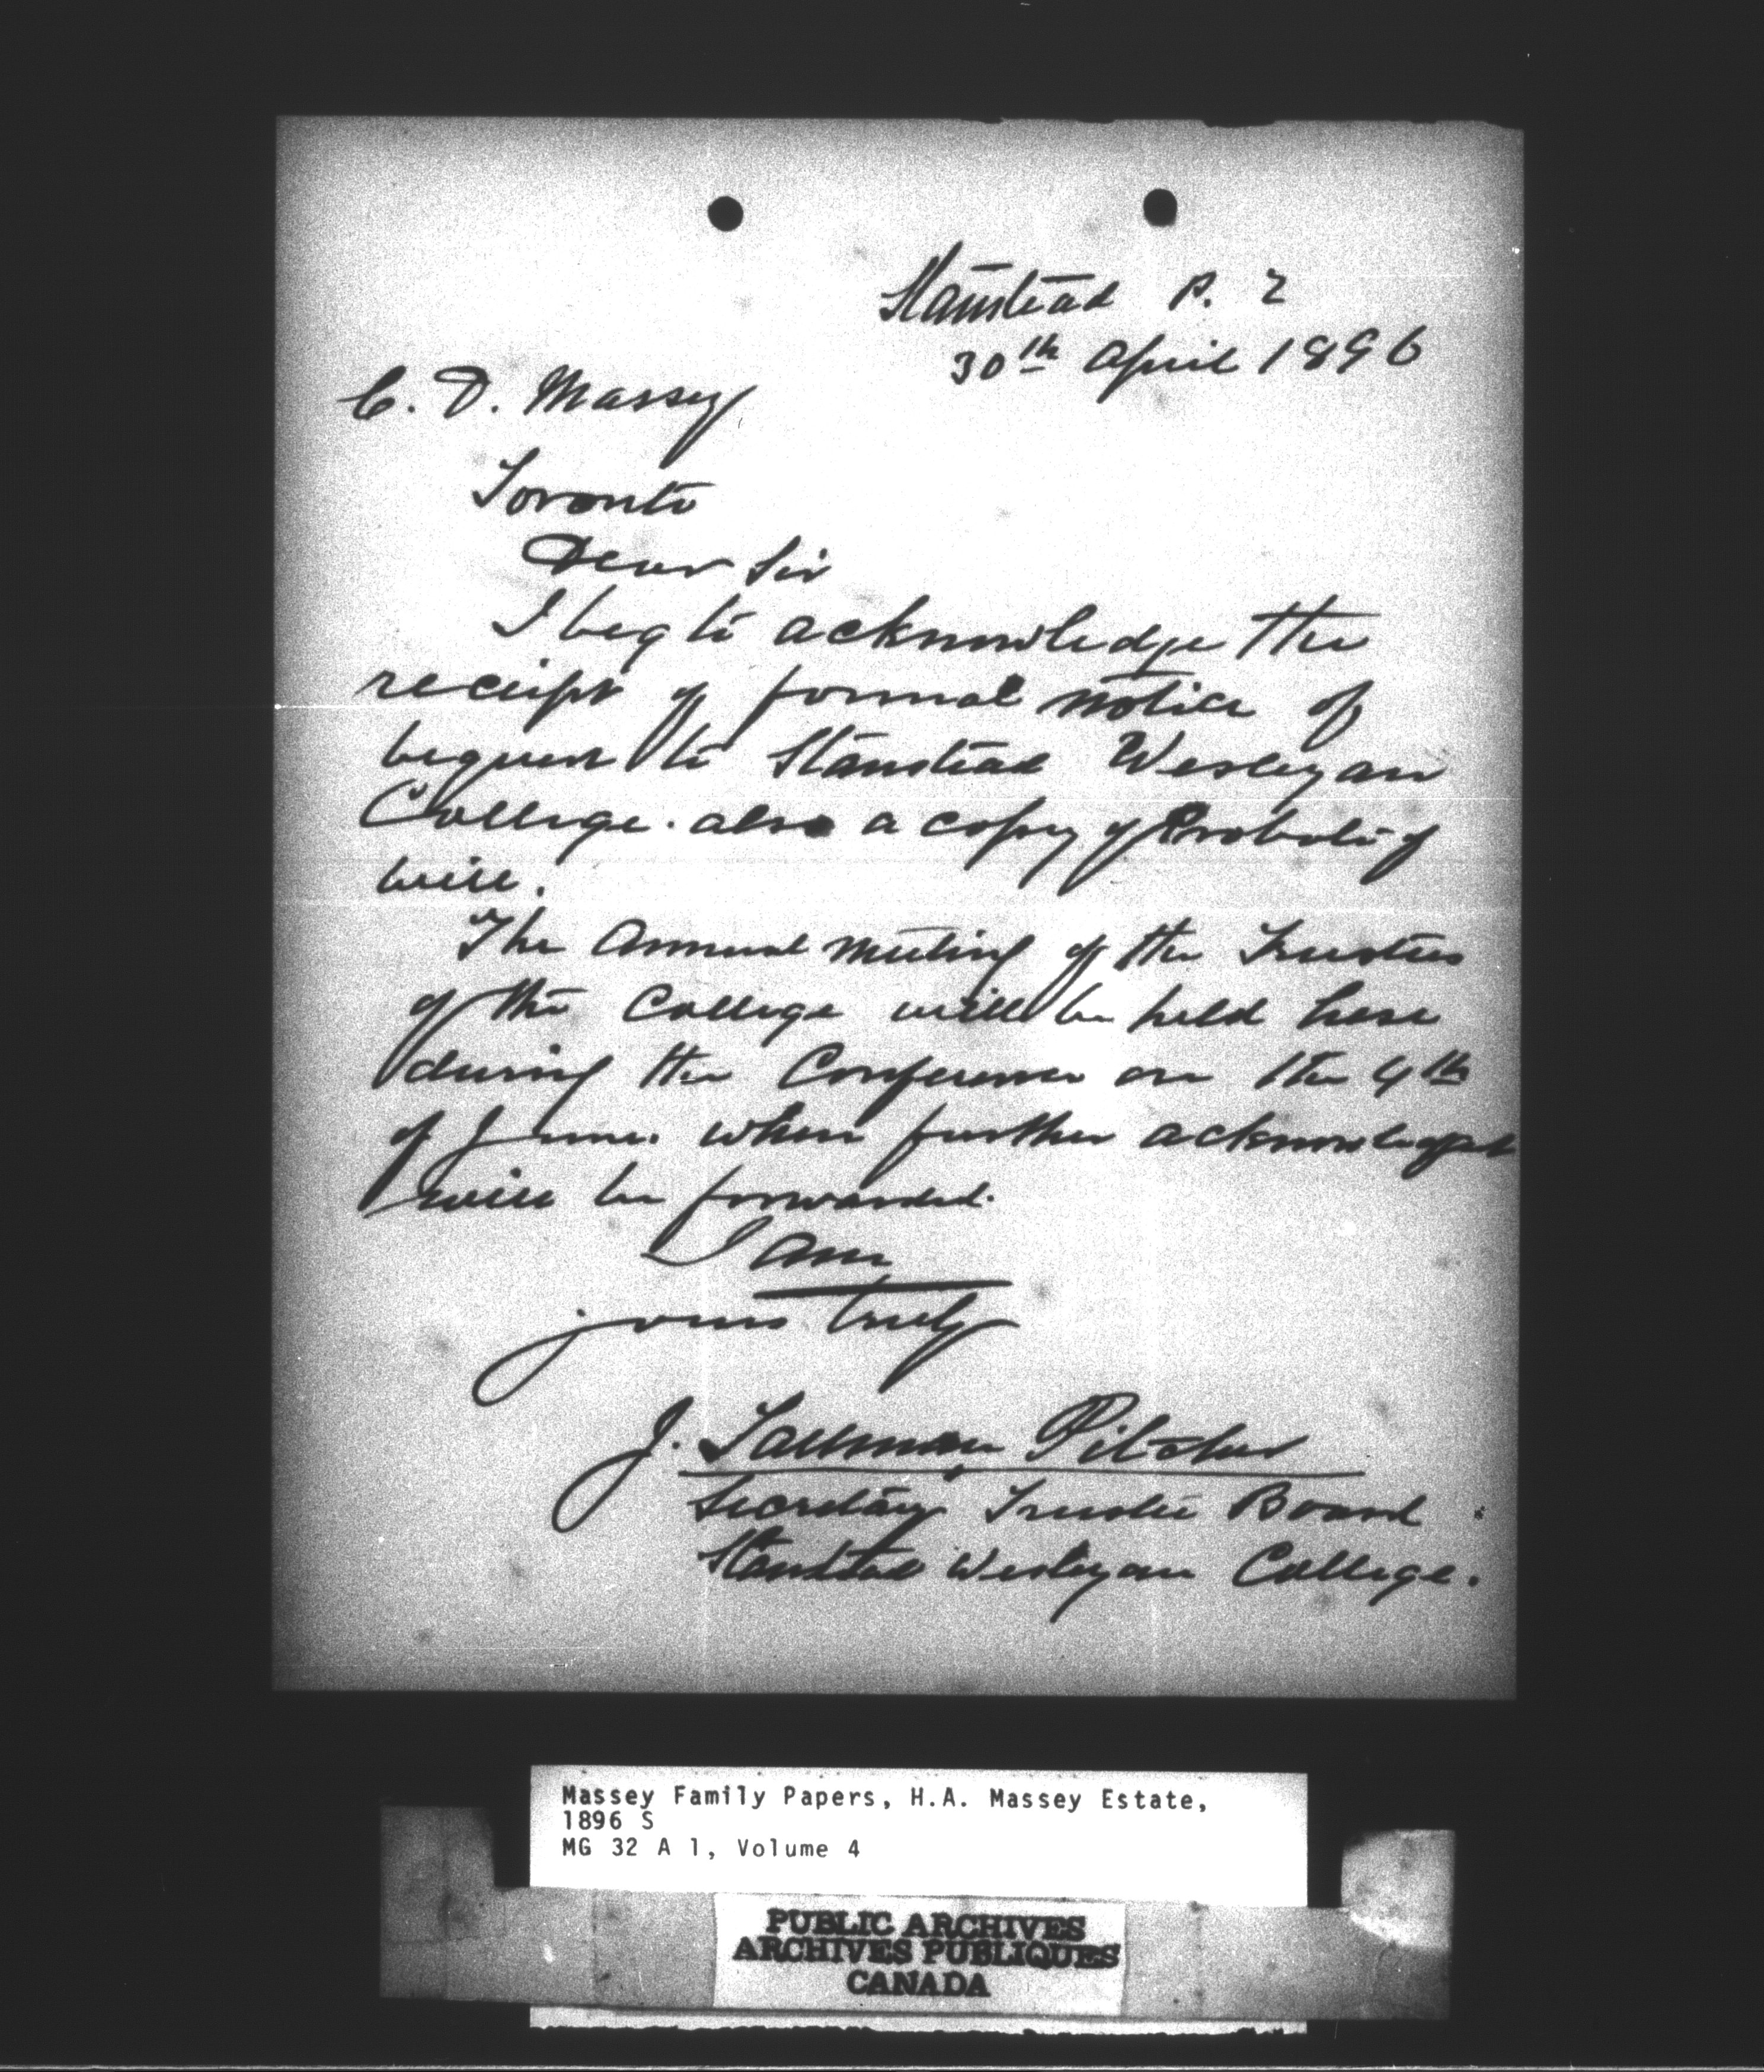 Stanstead P. Q
30th April 1896
C. D. Massey
Toronto
Dear Sir
I beg to acknowledge the
receipt of formal notice of
bequest to Stanstead Wesleyan
College. also a copy of Probate of
will.
The Annual meeting of the Trustees
of the College will be held here
during the Conference on the 4th
of June. when further acknowledgmt
will be forwarded.
I am
yours truly
J. Tallman Pitcher
Secretary Trustee Board
Stanstead Wesleyan College.
Massey Family Papers, H.A. Massey Estate,
1896 S
MG 32 A 1, Volume 4
PUBLIC ARCHIVES
ARCHIVES PUBLIQUES
CANADA